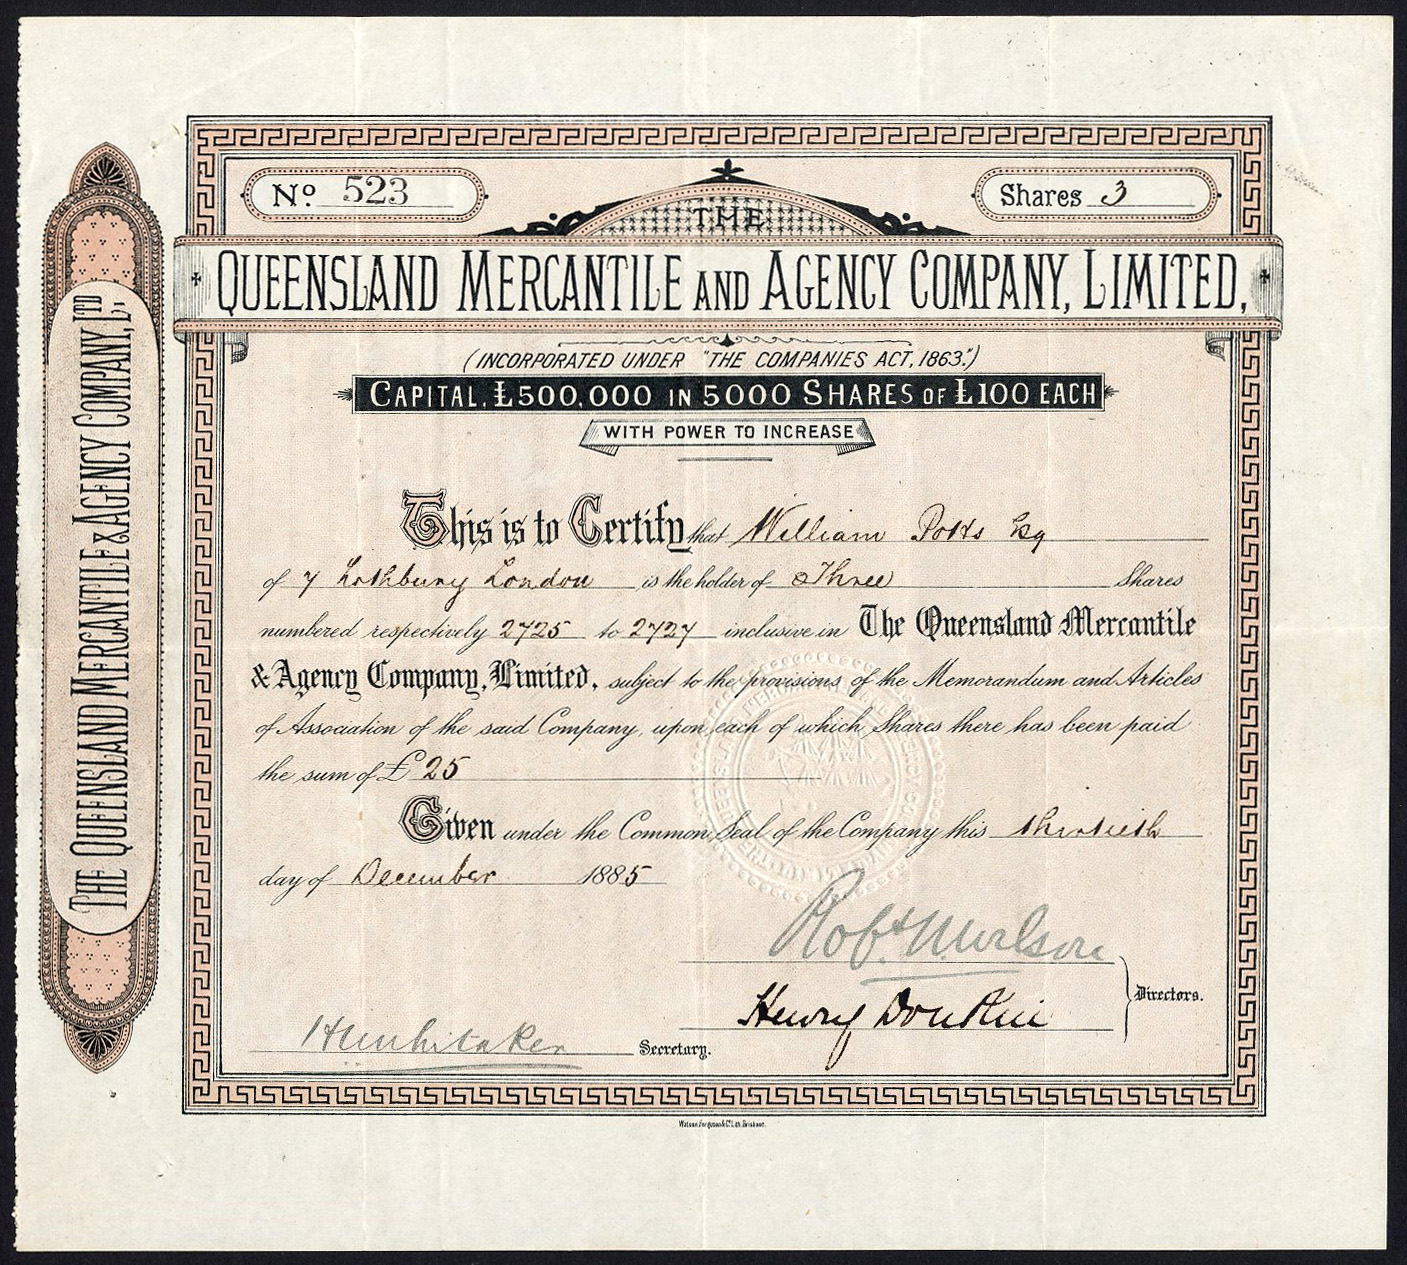 No. 523
Shares 3
THE
QUEENSLAND MERCANTILE AND AGENCY COMPANY, LIMITED,
(INCORPORATED UNDER "THE COMPANIES ACT, 1863.")
CAPITAL, £500,000 IN 5000 SHARES OF £100 EACH
WITH POWER TO INCREASE
This is to Certify that William Potts Esq
of 7 Lothbury London is the holder of Three Shares
numbered respectively 2725 to 2727 inclusive in The Queensland Mercantile
& Agency Company, Limited, subject to the provisions of the Memorandum and Articles
of Association of the said Company, upon each of which Shares there has been paid
the sum of £ 25
Given under the Common Seal of the Company this thirtieth
day of December 1885
Henry Donkin
Directors.
HWhitaker Secretary.
Watson, Ferguson & Co. Lith. Brisbane.
THE QUEENSLAND MERCANTILE & AGENCY COMPANY, LTD.